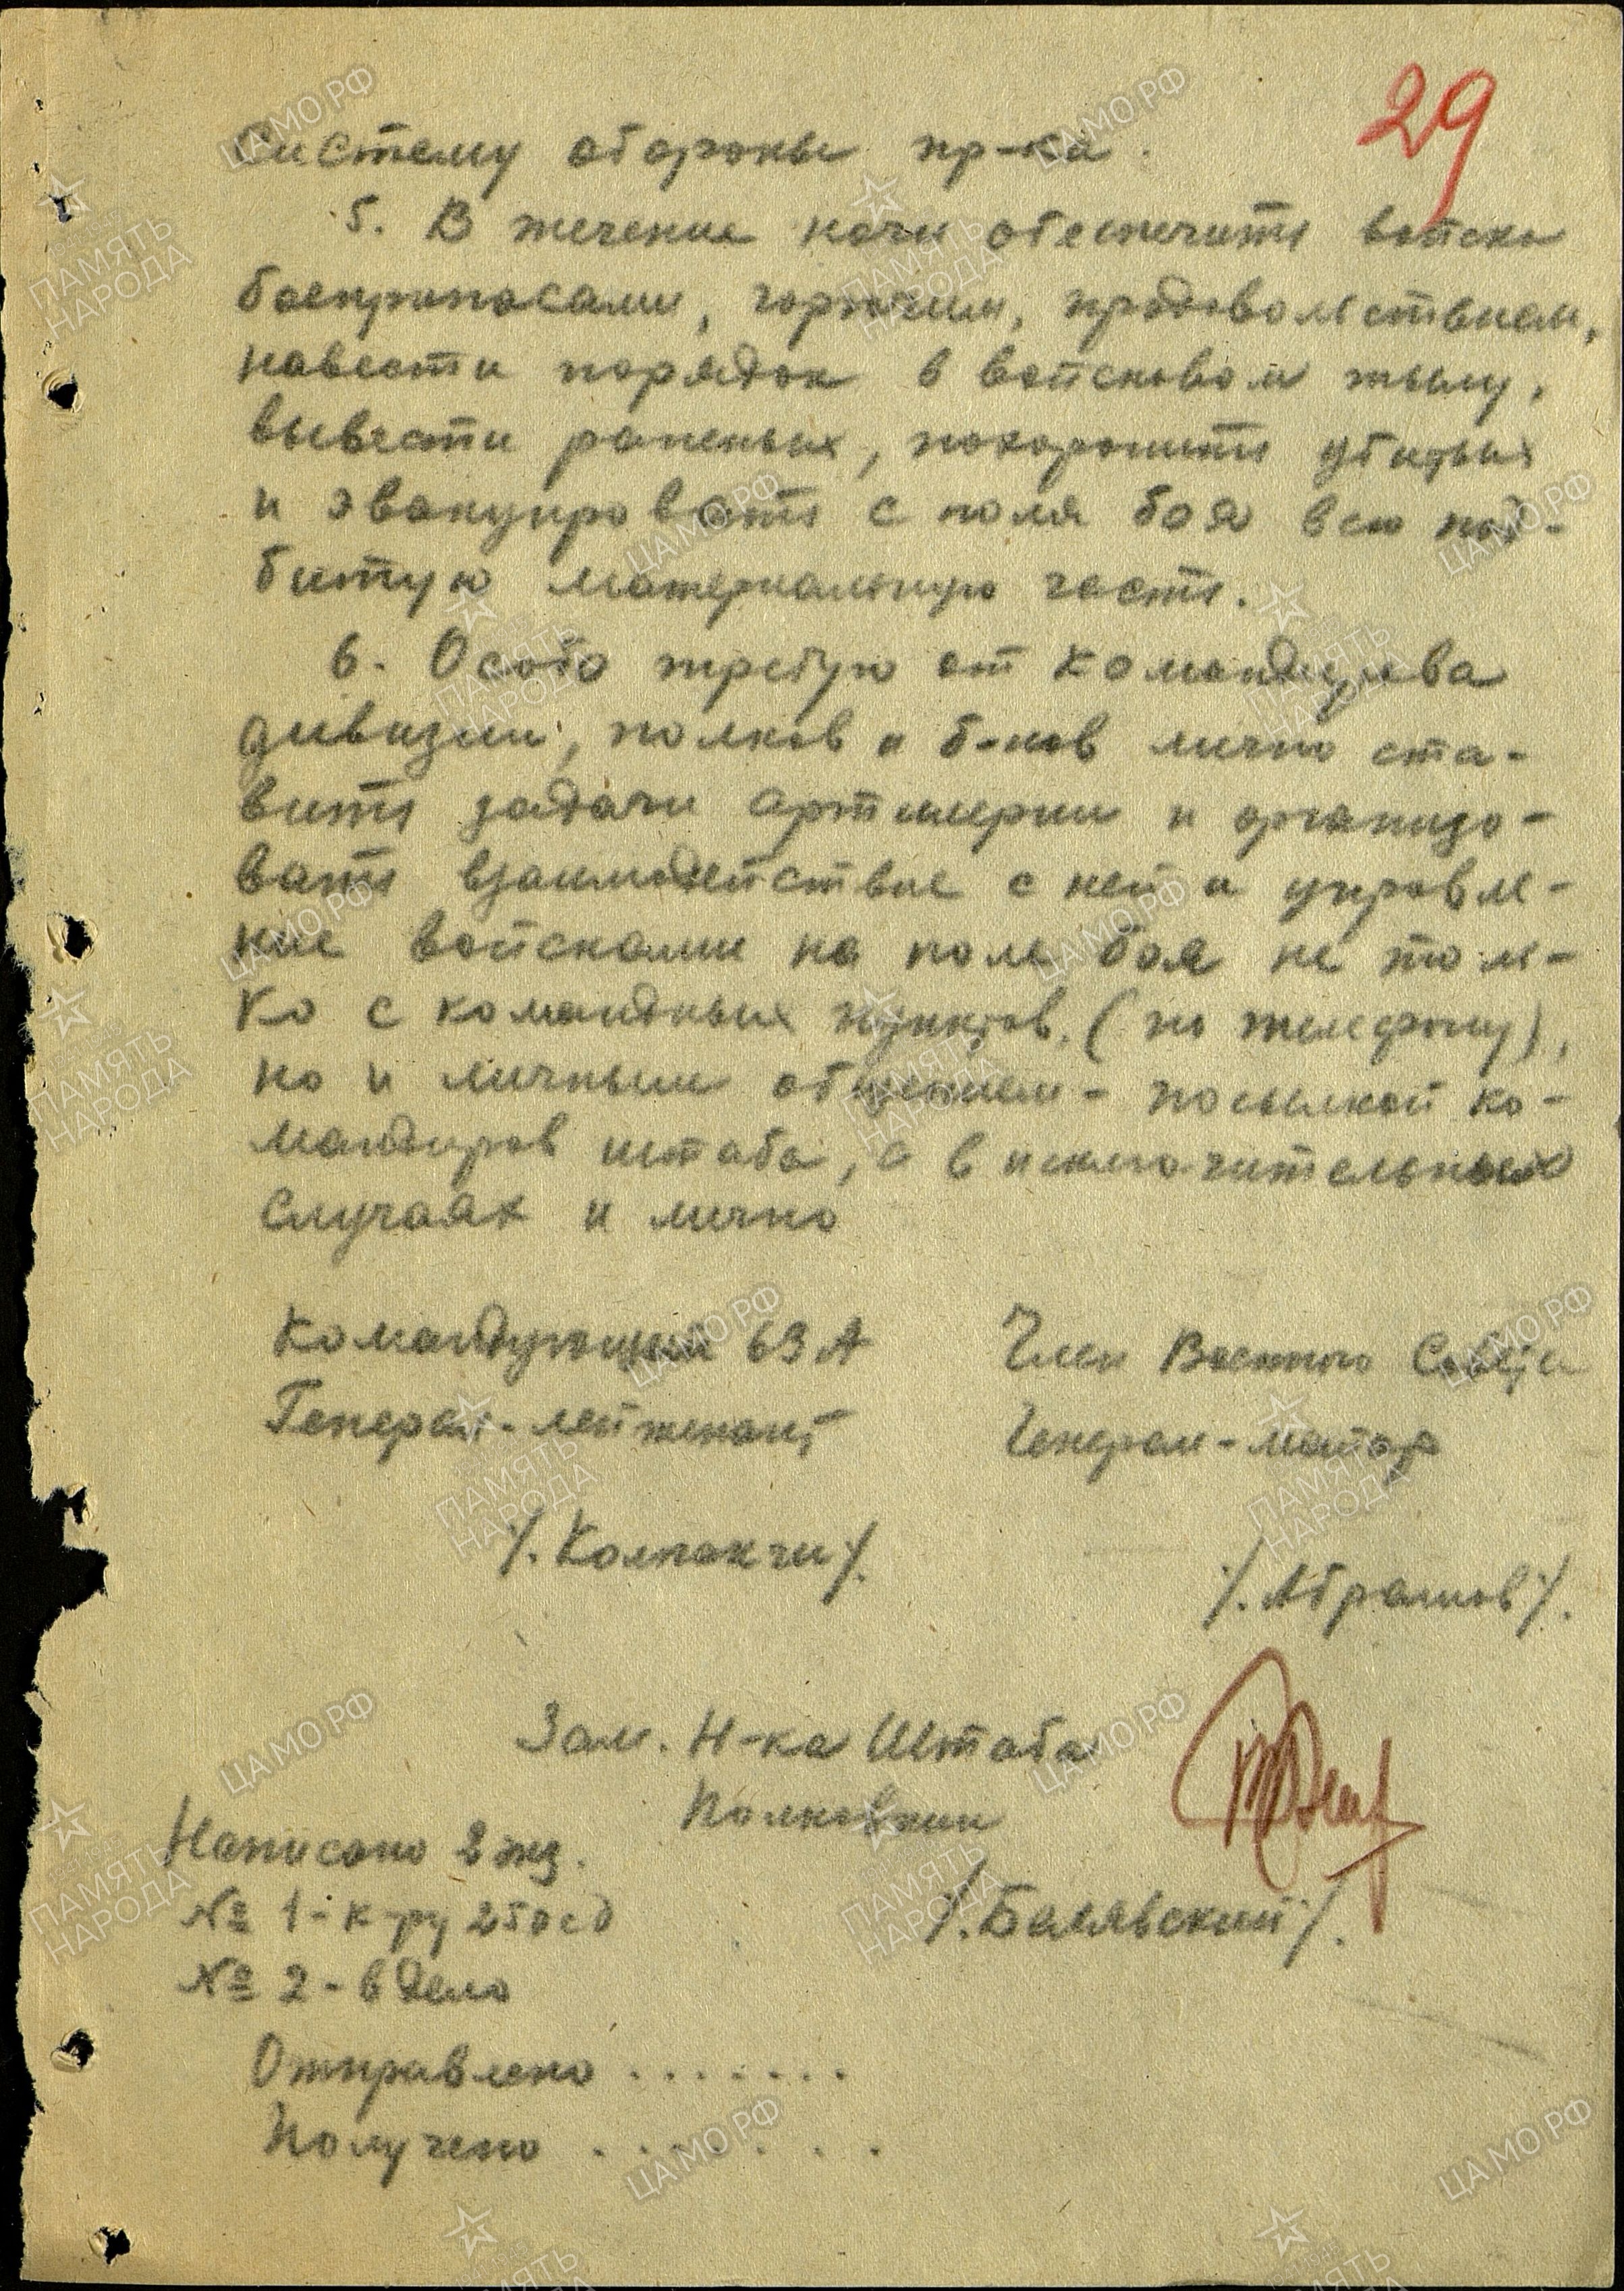 29
систему обороны пр-ка.
5. В течение ночи обеспечить войска
боеприпасами, горючим, продовольствием,
навести порядок в войсковом тылу,
вывести раненых, похоронить убитых
и эвакуировать с поля боя всю под-
битую материальную часть.
6. Особо требую от командиров
дивизии, полков и б-нов лично ста-
вить задачи артиллерии и организо-
вать взаимодействие с ней и управле-
ние войсками на поле боя не толь-
ко с командных пунктов, (по телефону),
но и личным общением - посылкой ко-
мандиров штаба, а в исключительных
случаях и лично
Командующий 63 А
Генерал-лейтенант
/. Колпакчи /.
Член Военного Совета
Генерал-майор
/. Абрамов /.
Зам. Н-ка Штаба
Полковник
/. Балявский /.
Написано 2 экз.
№ 1 - к-ру 250 сд
№ 2 - в дело
Отправлено . . . . . . .
Получено . . . . . . .
ЦАМО.РФ
ПАМЯТЬ НАРОДА